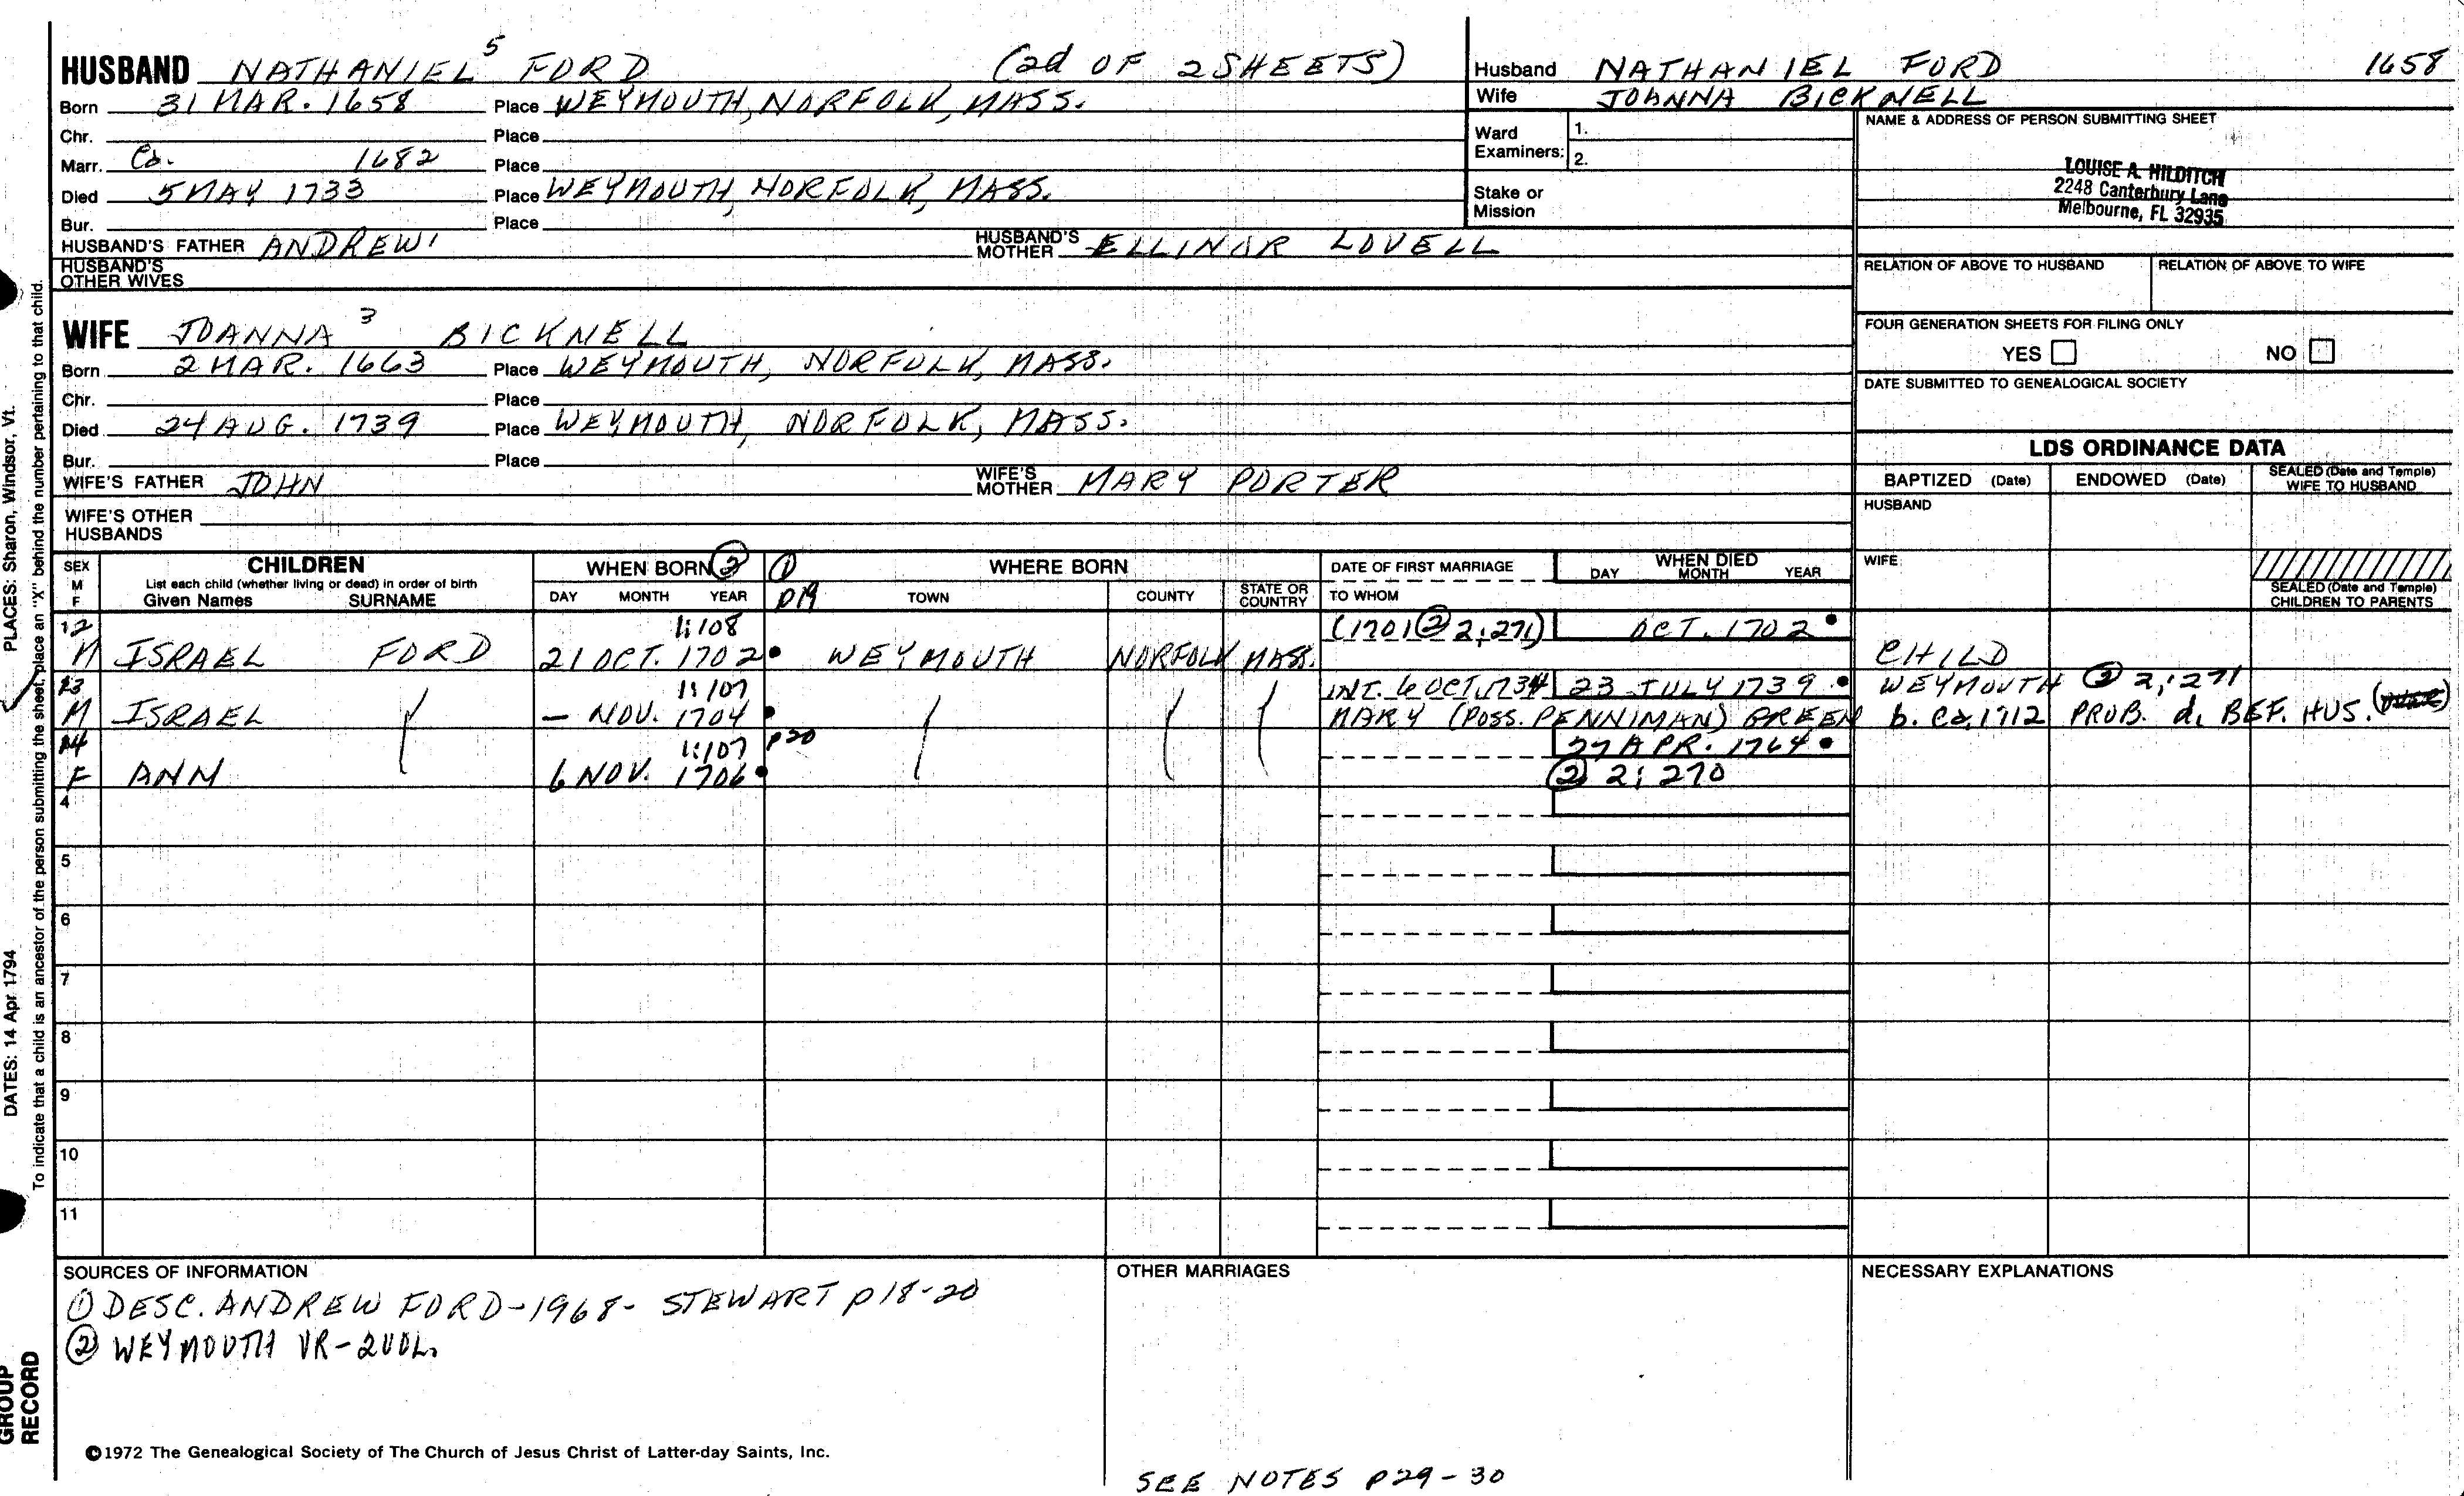 HUSBAND NATHANIEL 5 FORD (2d OF 2 SHEETS)
Born 31 MAR. 1658 Place WEYMOUTH, NORFOLK, MASS.
Chr. Place
Marr. Ca. 1682 Place
Died 5 MAY 1733 Place WEYMOUTH, NORFOLK, MASS.
Bur. Place
HUSBAND'S FATHER ANDREW 1 HUSBAND'S MOTHER ELLINOR LOVELL
HUSBAND'S OTHER WIVES
WIFE JOANNA 3 BICKNELL
Born 2 MAR. 1663 Place WEYMOUTH, NORFOLK, MASS.
Chr. Place
Died 24 AUG. 1739 Place WEYMOUTH, NORFOLK, MASS.
Bur. Place
WIFE'S FATHER JOHN WIFE'S MOTHER MARY PORTER
WIFE'S OTHER HUSBANDS
Husband NATHANIEL FORD 1658
Wife JOANNA BICKNELL
Ward Examiners: 1.
2.
Stake or Mission
NAME & ADDRESS OF PERSON SUBMITTING SHEET
LOUISE A. HILDITCH
2248 Canterbury Lane
Melbourne, FL 32935
RELATION OF ABOVE TO HUSBAND RELATION OF ABOVE TO WIFE
FOUR GENERATION SHEETS FOR FILING ONLY
YES NO
DATE SUBMITTED TO GENEALOGICAL SOCIETY
LDS ORDINANCE DATA
BAPTIZED (Date) ENDOWED (Date) SEALED (Date and Temple) WIFE TO HUSBAND
HUSBAND
WIFE
SEALED (Date and Temple) CHILDREN TO PARENTS
SEX M F CHILDREN WHEN BORN ② ① WHERE BORN DATE OF FIRST MARRIAGE WHEN DIED
List each child (whether living or dead) in order of birth
Given Names SURNAME DAY MONTH YEAR p19 TOWN COUNTY STATE OR COUNTRY TO WHOM DAY MONTH YEAR
12 1:108 (1701 ② 2:271) OCT. 1702
M ISRAEL FORD 21 OCT. 1702 WEYMOUTH NORFOLK MASS. CHILD
13 1:107 INT. 6 OCT. 1734 23 JULY 1739 WEYMOUTH ② 2:271
M ISRAEL - NOV. 1704 MARY (POSS. PENNIMAN) GREEN b. ca. 1712 PROB. d. BEF. HUS.
14 1:107 p20 27 APR. 1764
F ANN 6 NOV. 1706 ② 2:270
4
5
6
7
8
9
10
11
SOURCES OF INFORMATION
① DESC. ANDREW FORD-1968- STEWART p18-20
② WEYMOUTH VR-2VOL.
OTHER MARRIAGES
NECESSARY EXPLANATIONS
©1972 The Genealogical Society of The Church of Jesus Christ of Latter-day Saints, Inc.
SEE NOTES p29-30
PLACES: Sharon, Windsor, Vt.
DATES: 14 Apr 1794
To indicate that a child is an ancestor of the person submitting the sheet, place an "X" behind the number pertaining to that child.
GROUP
RECORD